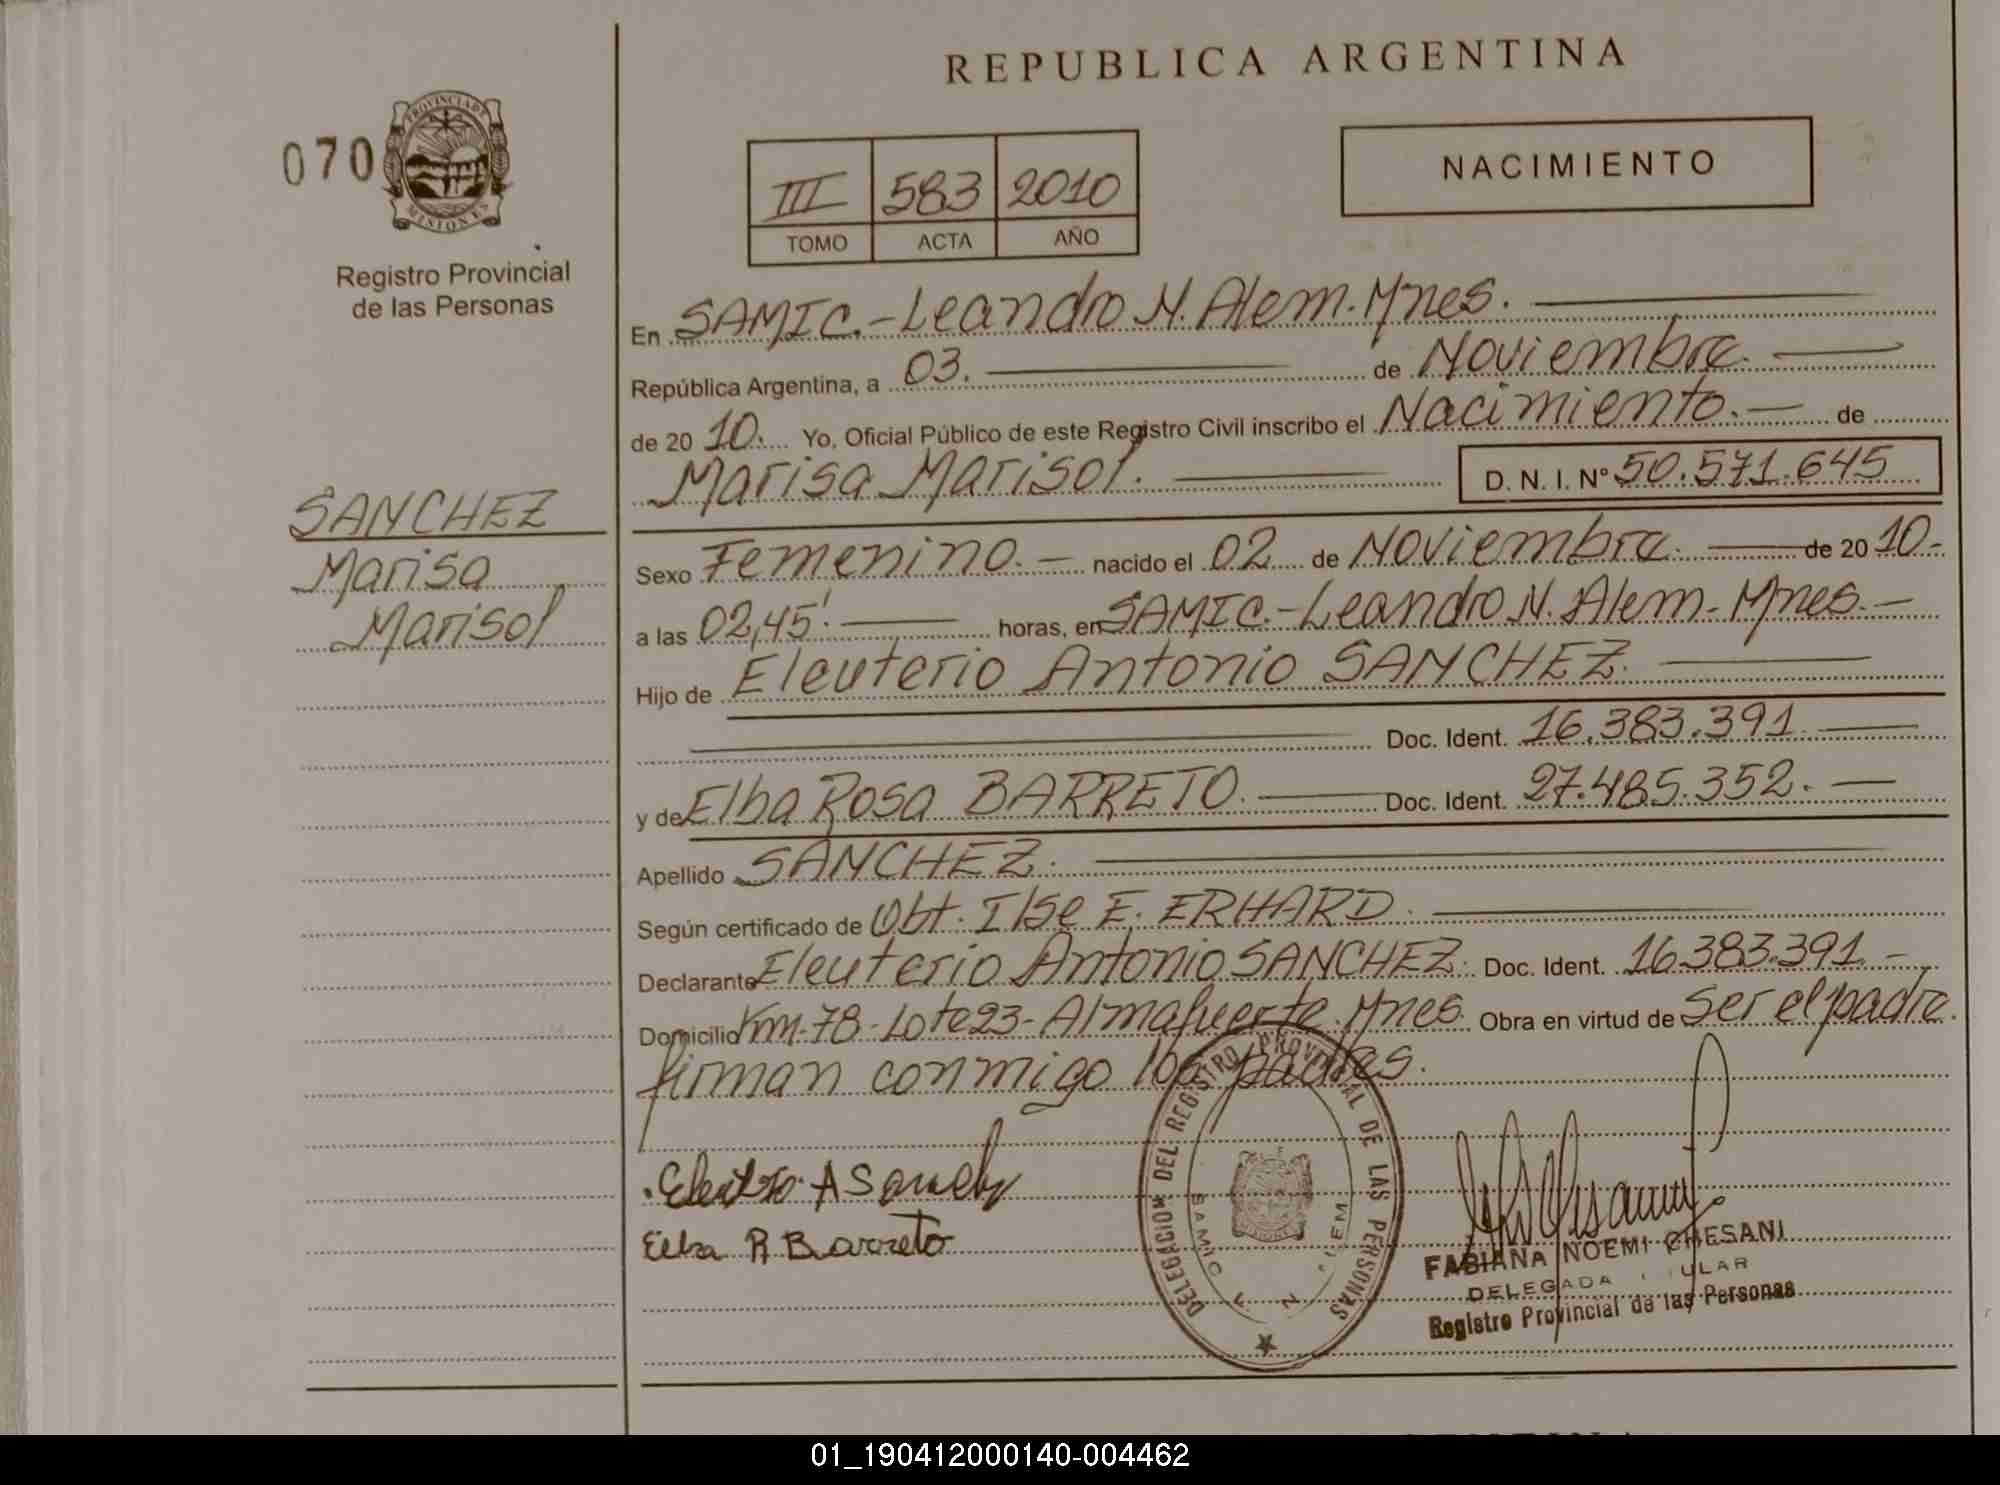 REPUBLICA ARGENTINA
070
PROVINCIA DE
MISIONES
Registro Provincial
de las Personas
NACIMIENTO
III 583 2010
TOMO ACTA AÑO
En SAMIC.-Leandro N. Alem. Mnes.
República Argentina, a 03. de Noviembre.
de 20 10. Yo, Oficial Público de este Registro Civil inscribo el Nacimiento. de
Marisa Marisol. D. N. I. Nº 50.571.645
SANCHEZ
Marisa
Marisol
Sexo Femenino. nacido el 02 de Noviembre. de 20 10-
a las 02,45'. horas, en SAMIC.-Leandro N. Alem-Mnes.-
Hijo de Eleuterio Antonio SANCHEZ.
Doc. Ident. 16.383.391.
y de Elba Rosa BARRETO. Doc. Ident. 27.485.352.
Apellido SANCHEZ.
Según certificado de Obt. Ilse E. ERHARD.
Declarante Eleuterio Antonio SANCHEZ. Doc. Ident. 16.383.391.-
Domicilio Km-78-Lote 23-Almafuerte. Mnes. Obra en virtud de ser el padre.
firman conmigo los padres.
Eleuterio A Sanchez
Elba R Barreto
DELEGACION DEL REGISTRO PROVINCIAL DE LAS PERSONAS
SAMIC L. N. ALEM
FABIANA NOEMI CHESANI
DELEGADA
Registro Provincial de las Personas
01_190412000140-004462